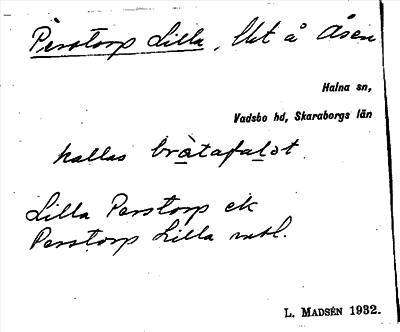 Perstorp Lilla, Ut å Åsen
Halna sn,
Vadsbo hd, Skaraborgs län
kallas bråtafalat
Lilla Perstorp ek
Perstorp Lilla mtl.
L. Madsén 1932.